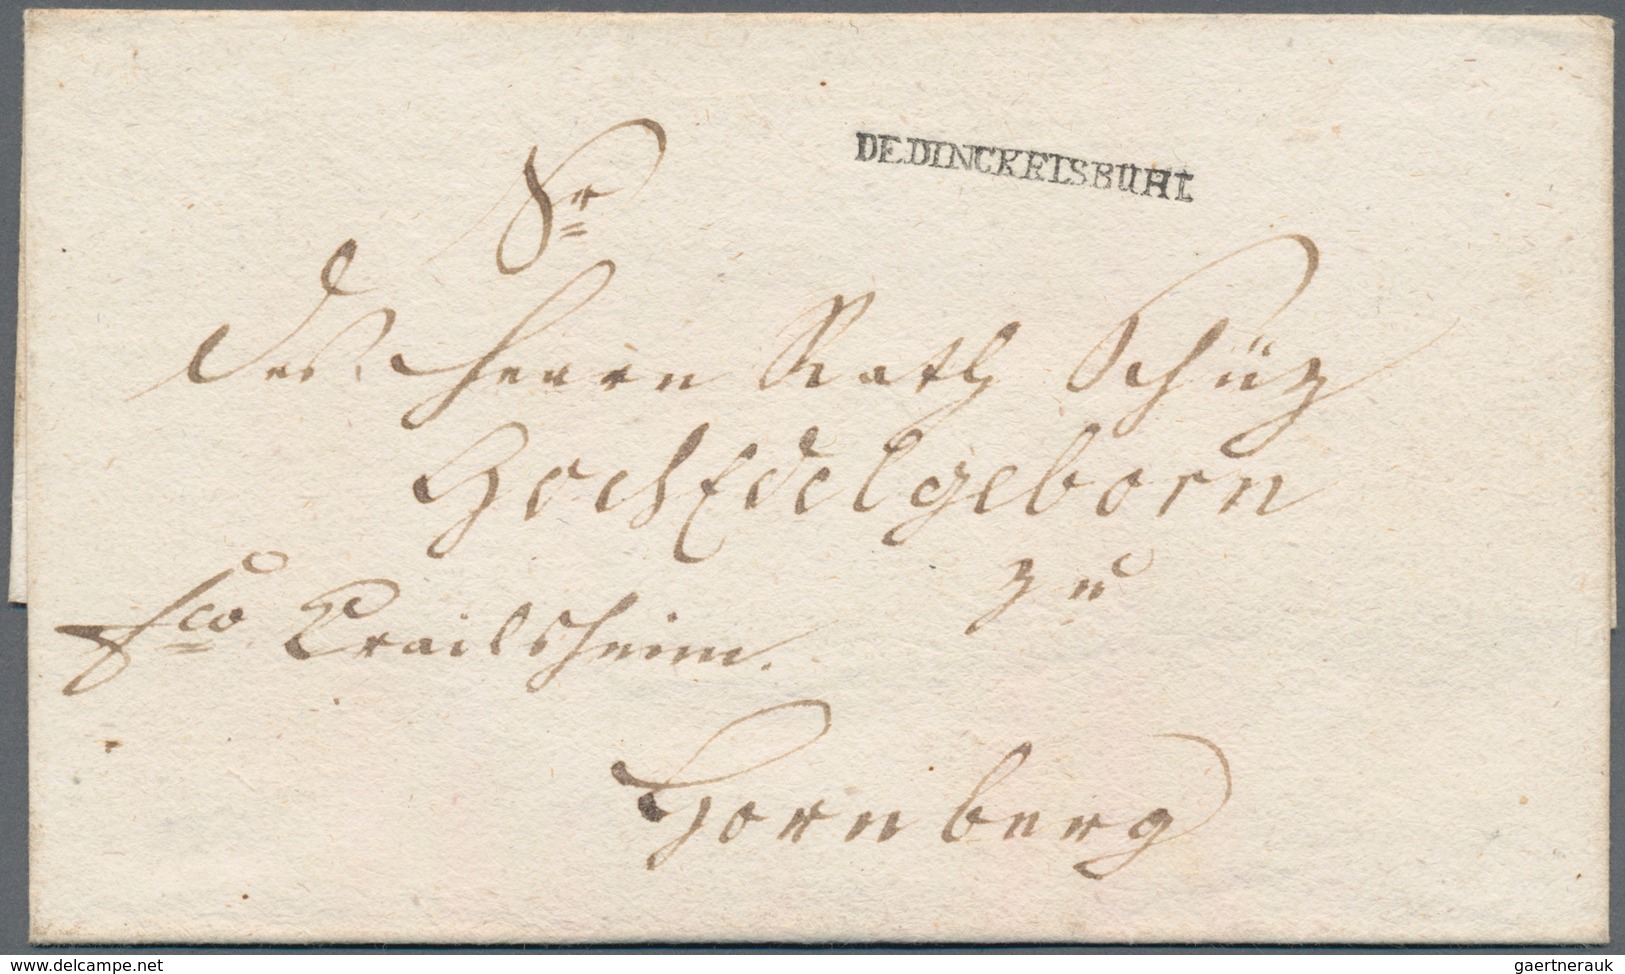 DE.DINCKELSBÜHL
Sr
des Herrn Rath Schüz
HochEdelgeborn
zu
fco Crailsheim.
Hornberg
www.delcampe.net
gaertnerauk